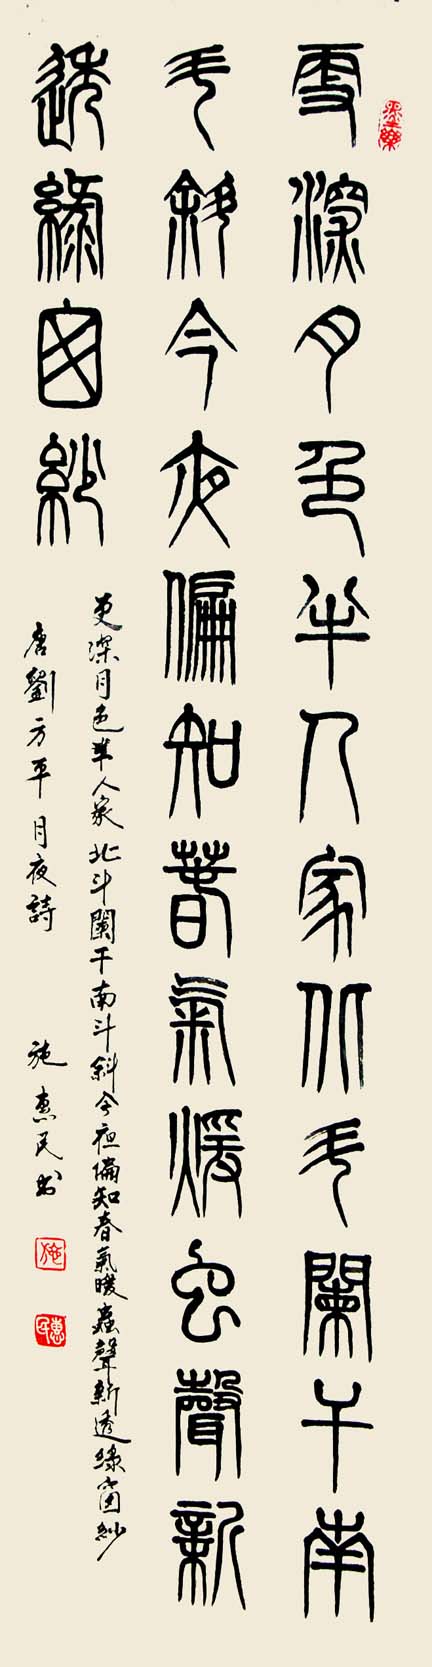 更深月色半人家北斗闌干南
斗斜今夜偏知春氣暖虫聲新
透綠窗紗
更深月色半人家北斗闌干南斗斜今夜偏知春氣暖蟲聲新透綠窗紗
唐劉方平月夜詩 施惠民书
施
惠民